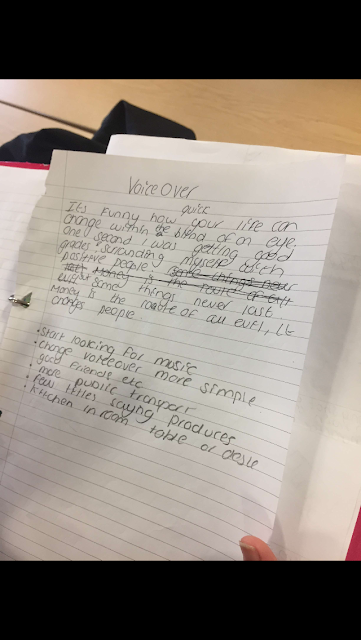 Voice Over
It's Funny how quick your life can
change within the blind of an eye.
one second i was getting good
grades, surrounding myself with
positive people, some things never
last Money is the route of all
evil some things never last
Money is the route of all evil, it
changes people
• Start looking for music
• Change voiceover more simple
good friends etc
• more public transport
• titles saying produces
• kitchen in room table or deske